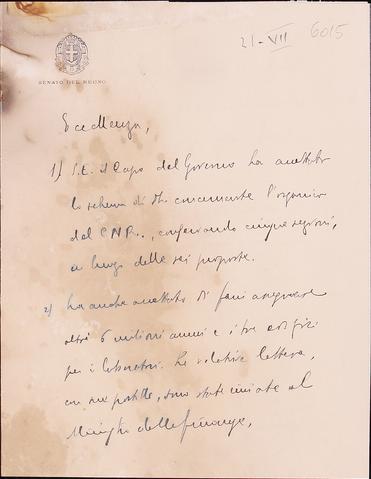 21-VII 6015
SENATO DEL REGNO
Eccellenza,
1) S.E. il Capo del Governo ha accettato
lo schema di concernente l'organico
del C.N.R., conservando cinque
a luogo delle sei proposte.
2) ha anche accettato di farci assegnare
altri 6 milioni annui e i tre edifizi
per i laboratori. Le relative lettere,
con sue postille, sono state inviate al
delle finanze,